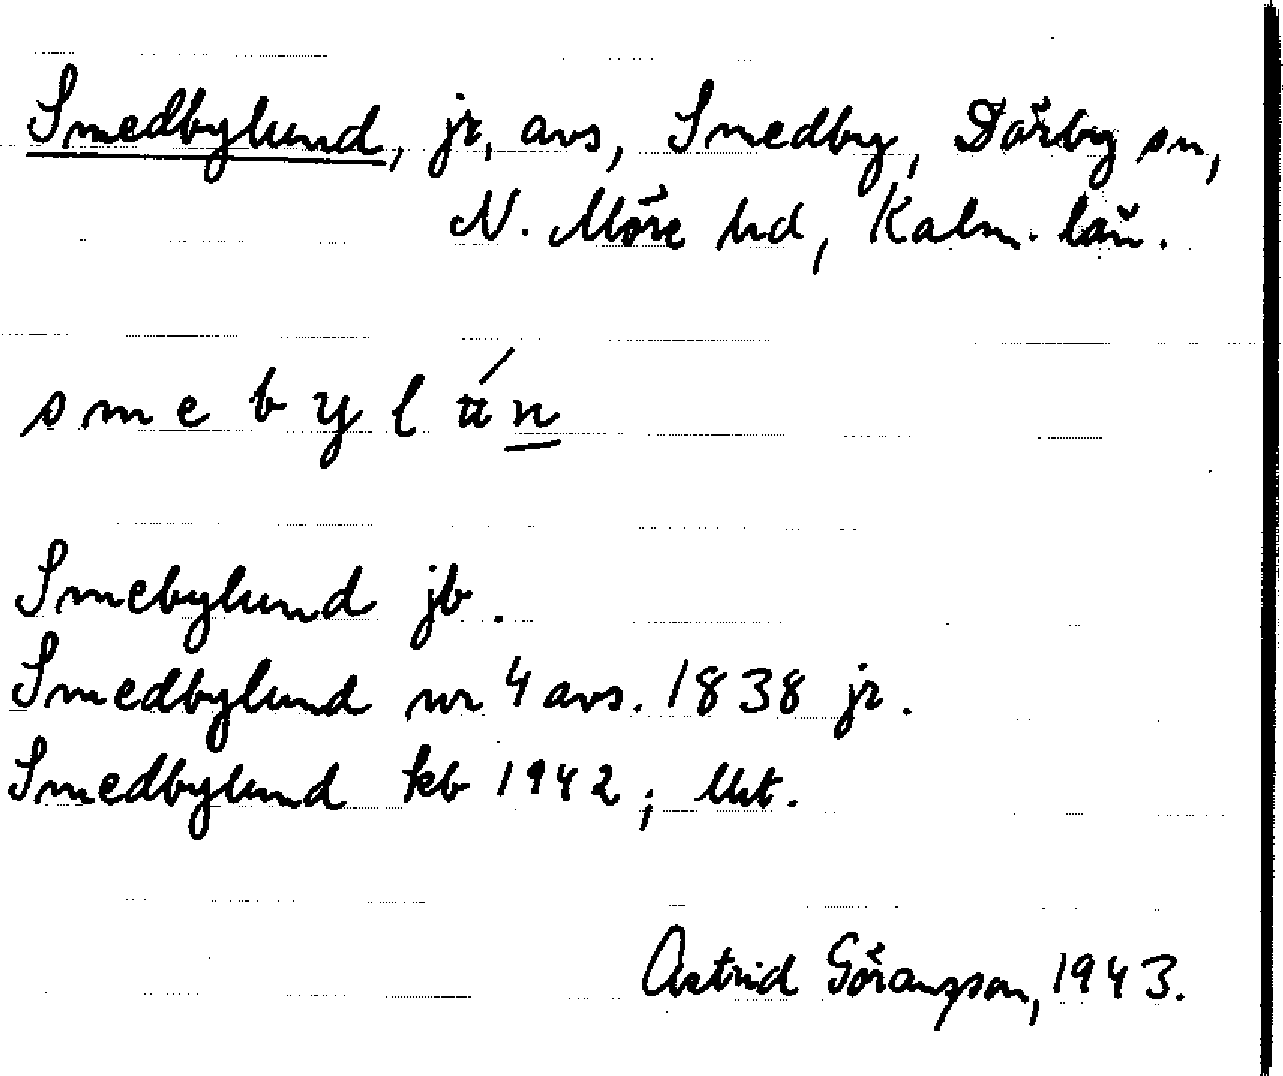 Smedbylund, jr, avs, Smedby, Dörby sn,
N. Möre hd, Kalm. län.
smebylún
Smebylund jb.
Smedbylund nr 4 avs. 1838 jr.
Smedbylund kb 1942; Utt.
Astrid Göranzson, 1943.